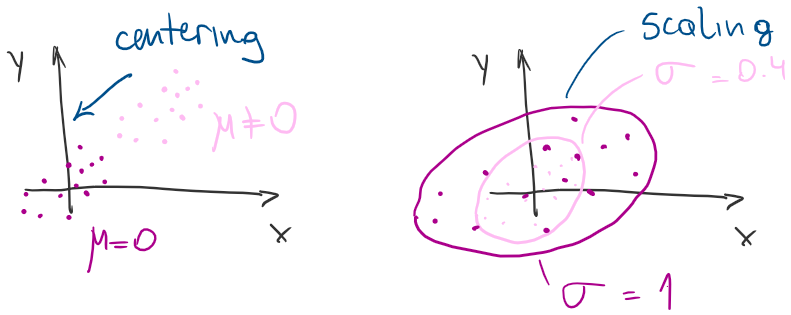 centering
y
μ≠0
x
μ=0
scaling
y
σ = 0.4
x
σ = 1